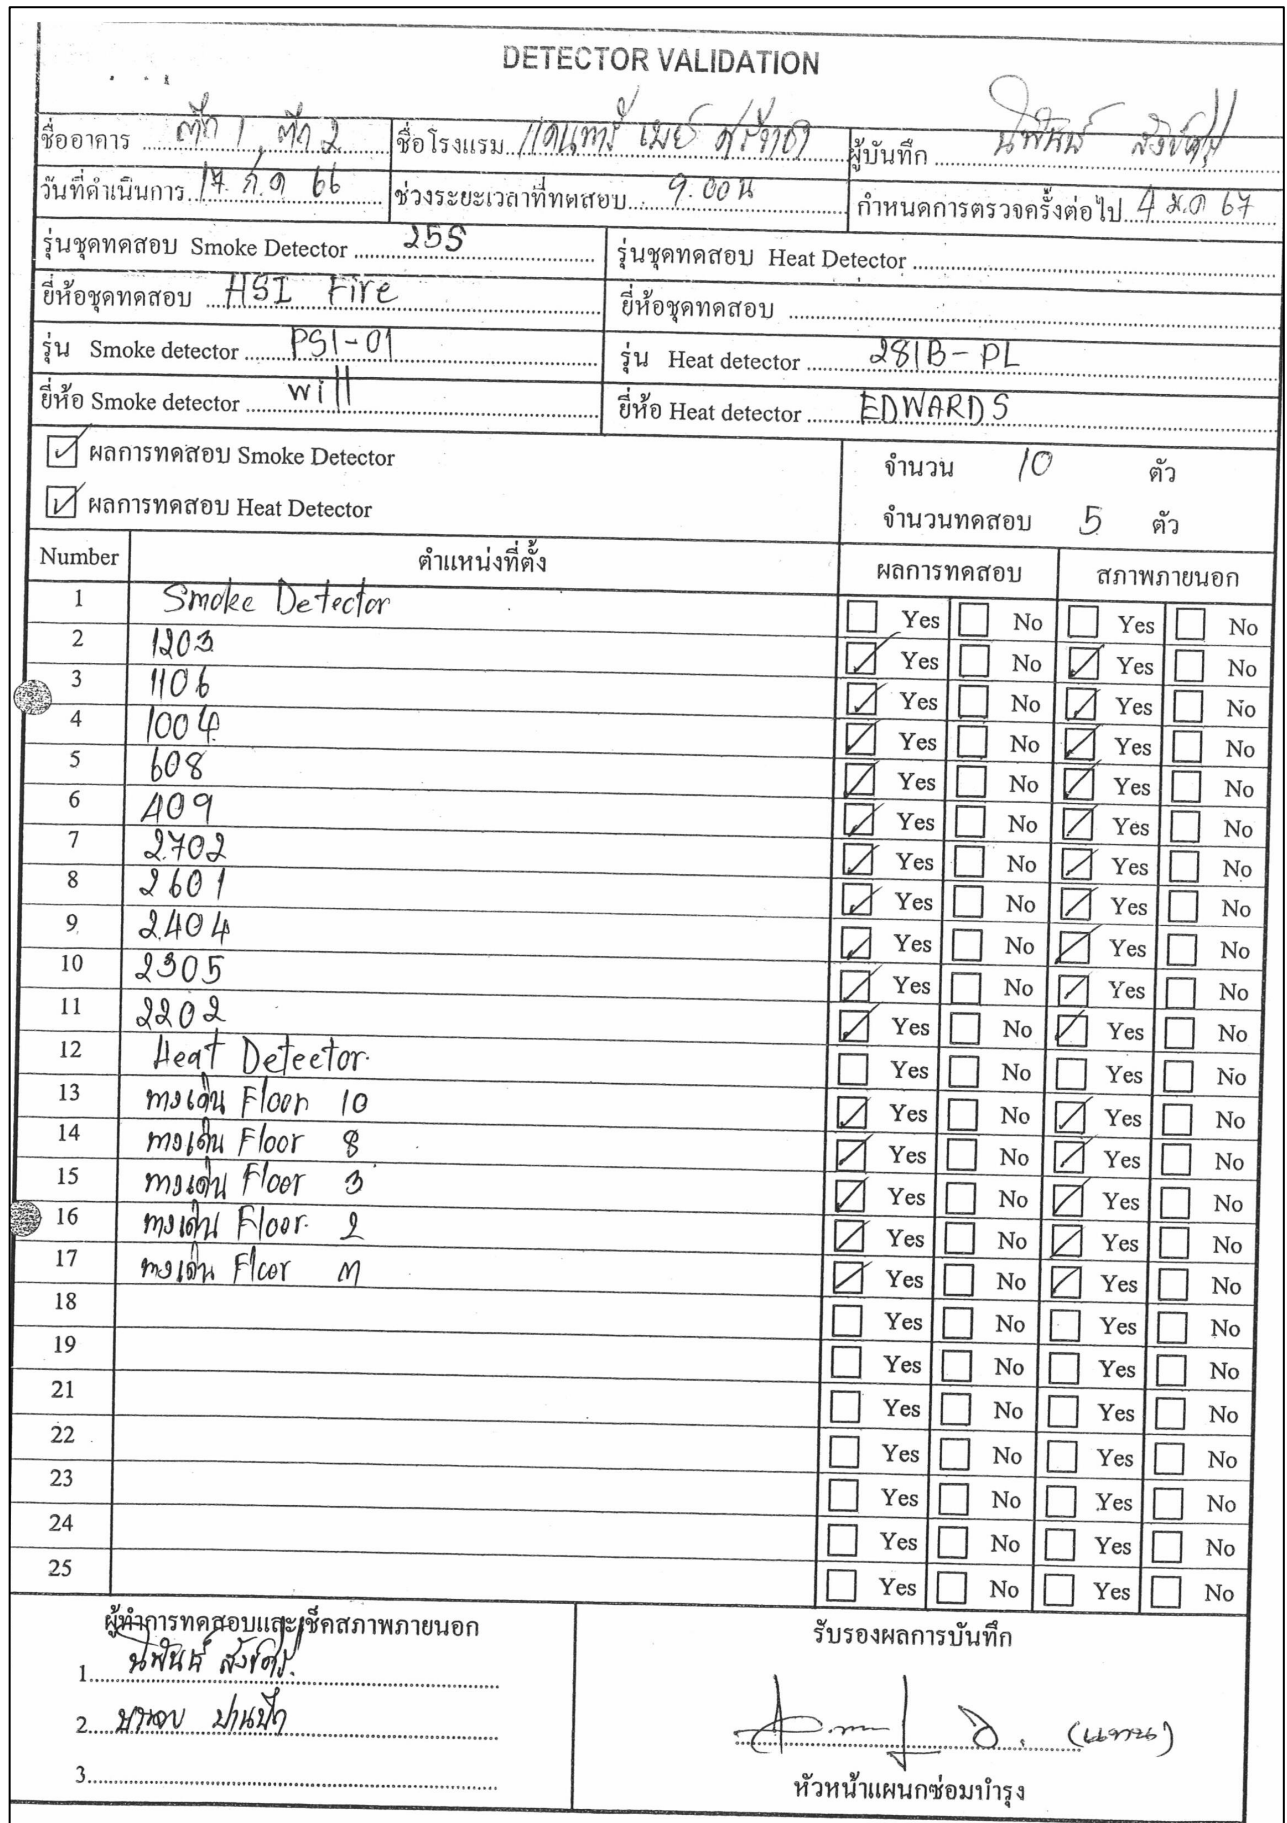 DETECTOR VALIDATION
ชื่ออาคาร ตึก 1, ตึก 2 ชื่อโรงแรม แคนทารี่ เบย์ ศรีราชา ผู้บันทึก นิพันธ์
วันที่ดำเนินการ 17 ก.ค 66 ช่วงระยะเวลาที่ทดสอบ 9.00 น กำหนดการตรวจครั้งต่อไป 4 ม.ค 67
รุ่นชุดทดสอบ Smoke Detector 25S รุ่นชุดทดสอบ Heat Detector
ยี่ห้อชุดทดสอบ HSI Fire ยี่ห้อชุดทดสอบ
รุ่น Smoke detector PS1-01 รุ่น Heat detector 281B-PL
ยี่ห้อ Smoke detector will ยี่ห้อ Heat detector EDWARDS
ผลการทดสอบ Smoke Detector จำนวน 10 ตัว
ผลการทดสอบ Heat Detector จำนวนทดสอบ 5 ตัว
Number ตำแหน่งที่ตั้ง ผลการทดสอบ สภาพภายนอก
1 Smoke Detector Yes No Yes No
2 1203 Yes No Yes No
3 1106 Yes No Yes No
4 1004 Yes No Yes No
5 608 Yes No Yes No
6 409 Yes No Yes No
7 2702 Yes No Yes No
8 2601 Yes No Yes No
9 2404 Yes No Yes No
10 2305 Yes No Yes No
11 2202 Yes No Yes No
12 Heat Detector Yes No Yes No
13 ทางเดิน Floor 10 Yes No Yes No
14 ทางเดิน Floor 8 Yes No Yes No
15 ทางเดิน Floor 3 Yes No Yes No
16 ทางเดิน Floor 2 Yes No Yes No
17 ทางเดิน Floor M Yes No Yes No
18 Yes No Yes No
19 Yes No Yes No
21 Yes No Yes No
22 Yes No Yes No
23 Yes No Yes No
24 Yes No Yes No
25 Yes No Yes No
ผู้ทำการทดสอบและเช็คสภาพภายนอก รับรองผลการบันทึก
1 นิพันธ์
2
(แทน)
3
หัวหน้าแผนกซ่อมบำรุง